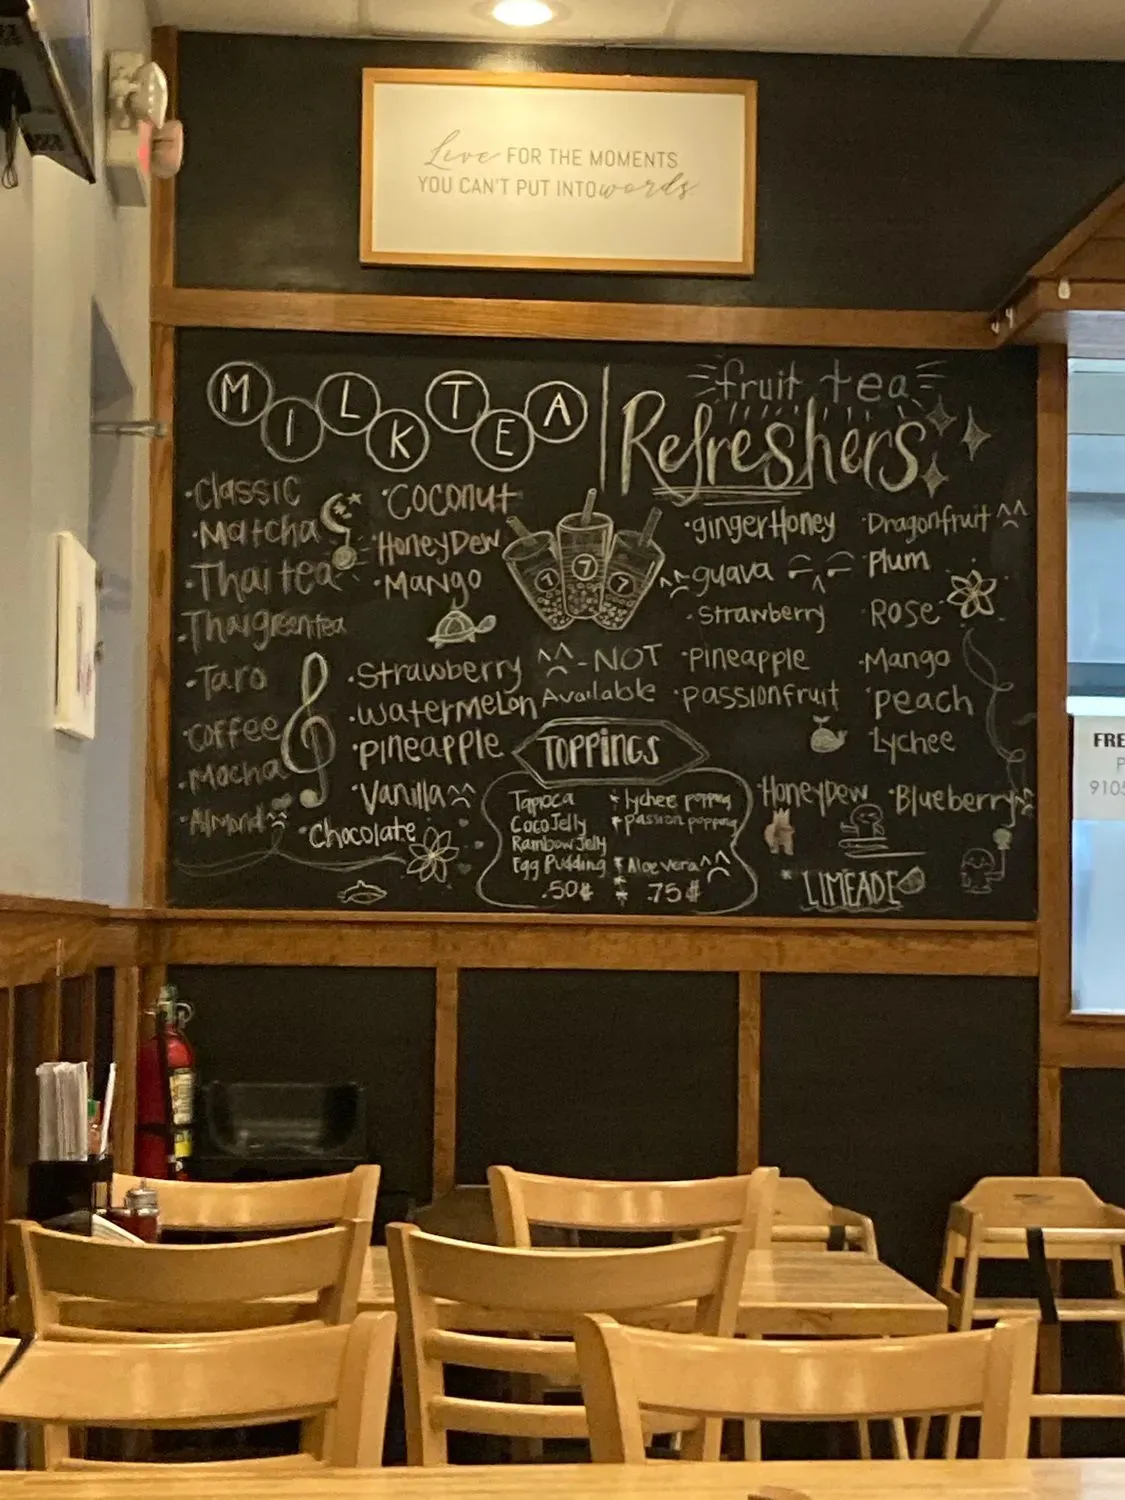 Live FOR THE MOMENTS
YOU CAN'T PUT INTO words.
MILK TEA
·Classic
·Matcha
·Thai tea
·Thai green tea
·Taro
·Coffee
·Mocha
·Almond ^^
·Coconut
·HoneyDew
·Mango
·Strawberry
·Watermelon
·Pineapple
·Vanilla ^^
·Chocolate
7 7 7
^^ - NOT
Available
fruit tea
Refreshers
·gingerHoney
^^ guava
·Strawberry
·Pineapple
·passionfruit
·Dragonfruit ^^
·Plum
·Rose
·Mango
·peach
·Lychee
·HoneyDew ·Blueberry ^^
* LIMEADE
TOPPINGS
Tapioca
Coco Jelly
Rainbow Jelly
Egg Pudding
.50¢
* lychee popping
* passion popping
* Aloe vera ^^
.75¢
FRE
P
9105